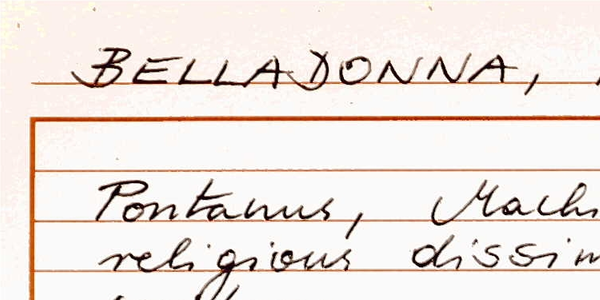 BELLADONNA,
Pontanus, Machi
religious dissim